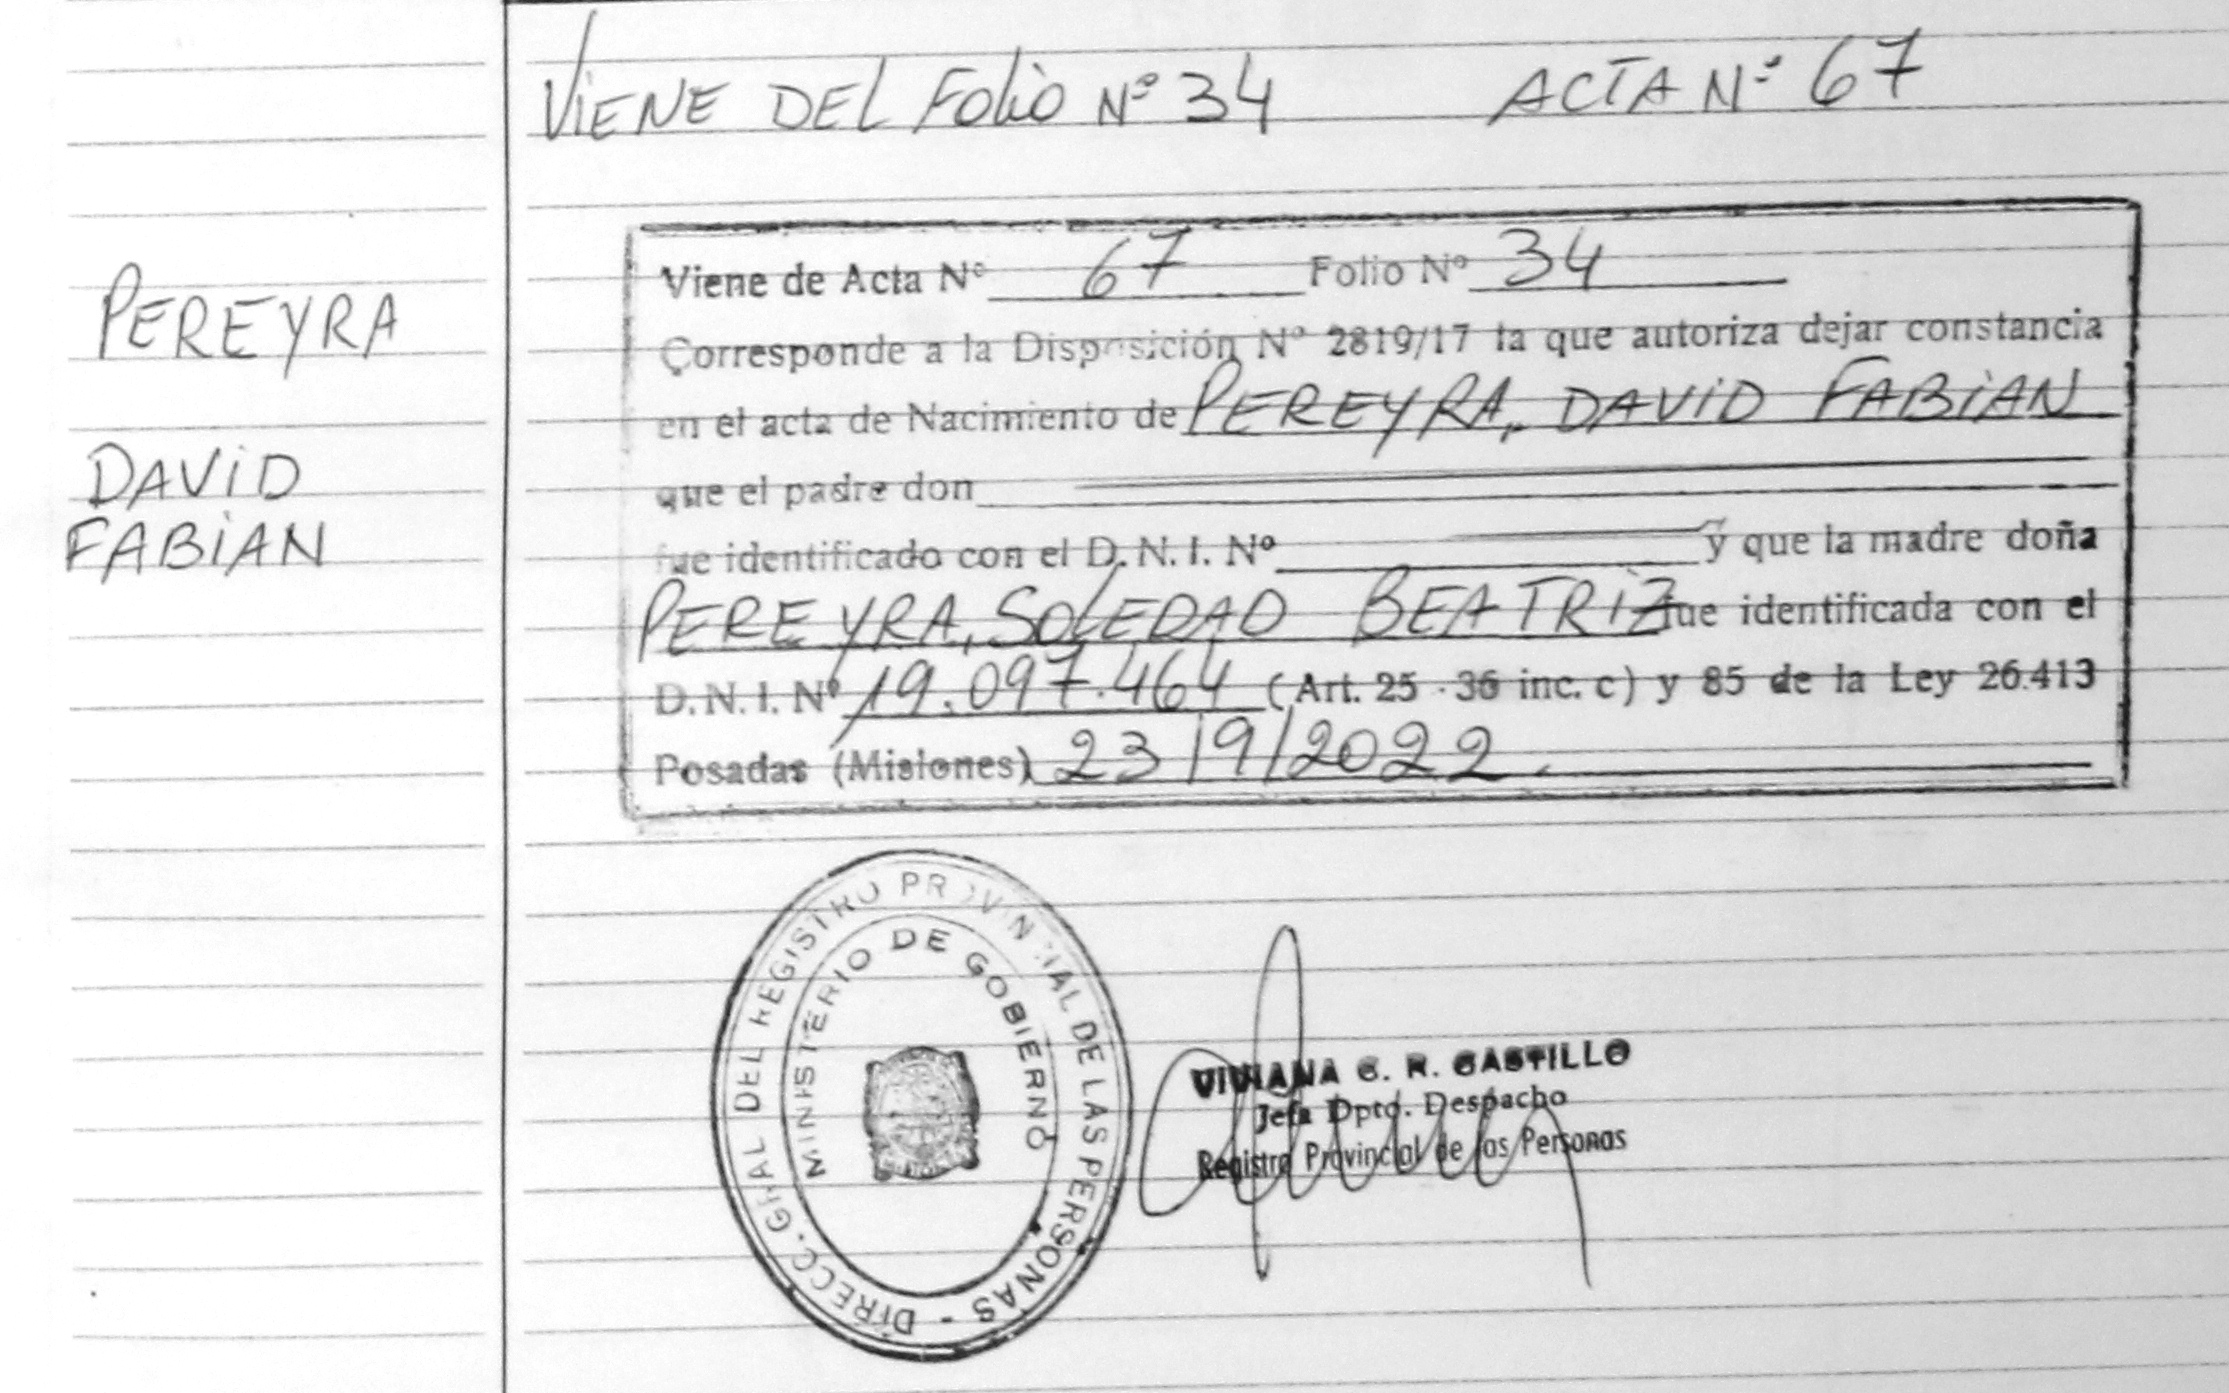 VIENE DEL FOLIO Nº 34 ACTA Nº 67
PEREYRA
DAVID
FABIAN
Viene de Acta Nº 67 Folio Nº 34
Corresponde a la Disposición Nº 2819/17 la que autoriza dejar constancia
en el acta de Nacimiento de PEREYRA, DAVID FABIAN
que el padre don
fue identificado con el D. N. I. Nº y que la madre doña
PEREYRA, SOLEDAD BEATRIZ fue identificada con el
D. N. I. Nº 19.097.464 (Art. 25 - 36 inc. c) y 85 de la Ley 26.413
Posadas (Misiones) 23/9/2022.
DIRECC. GRAL DEL REGISTRO PROVINCIAL DE LAS PERSONAS -
MINISTERIO DE GOBIERNO
VIVIANA G. R. CASTILLO
Jefa Dpto. Despacho
Registro Provincial de las Personas